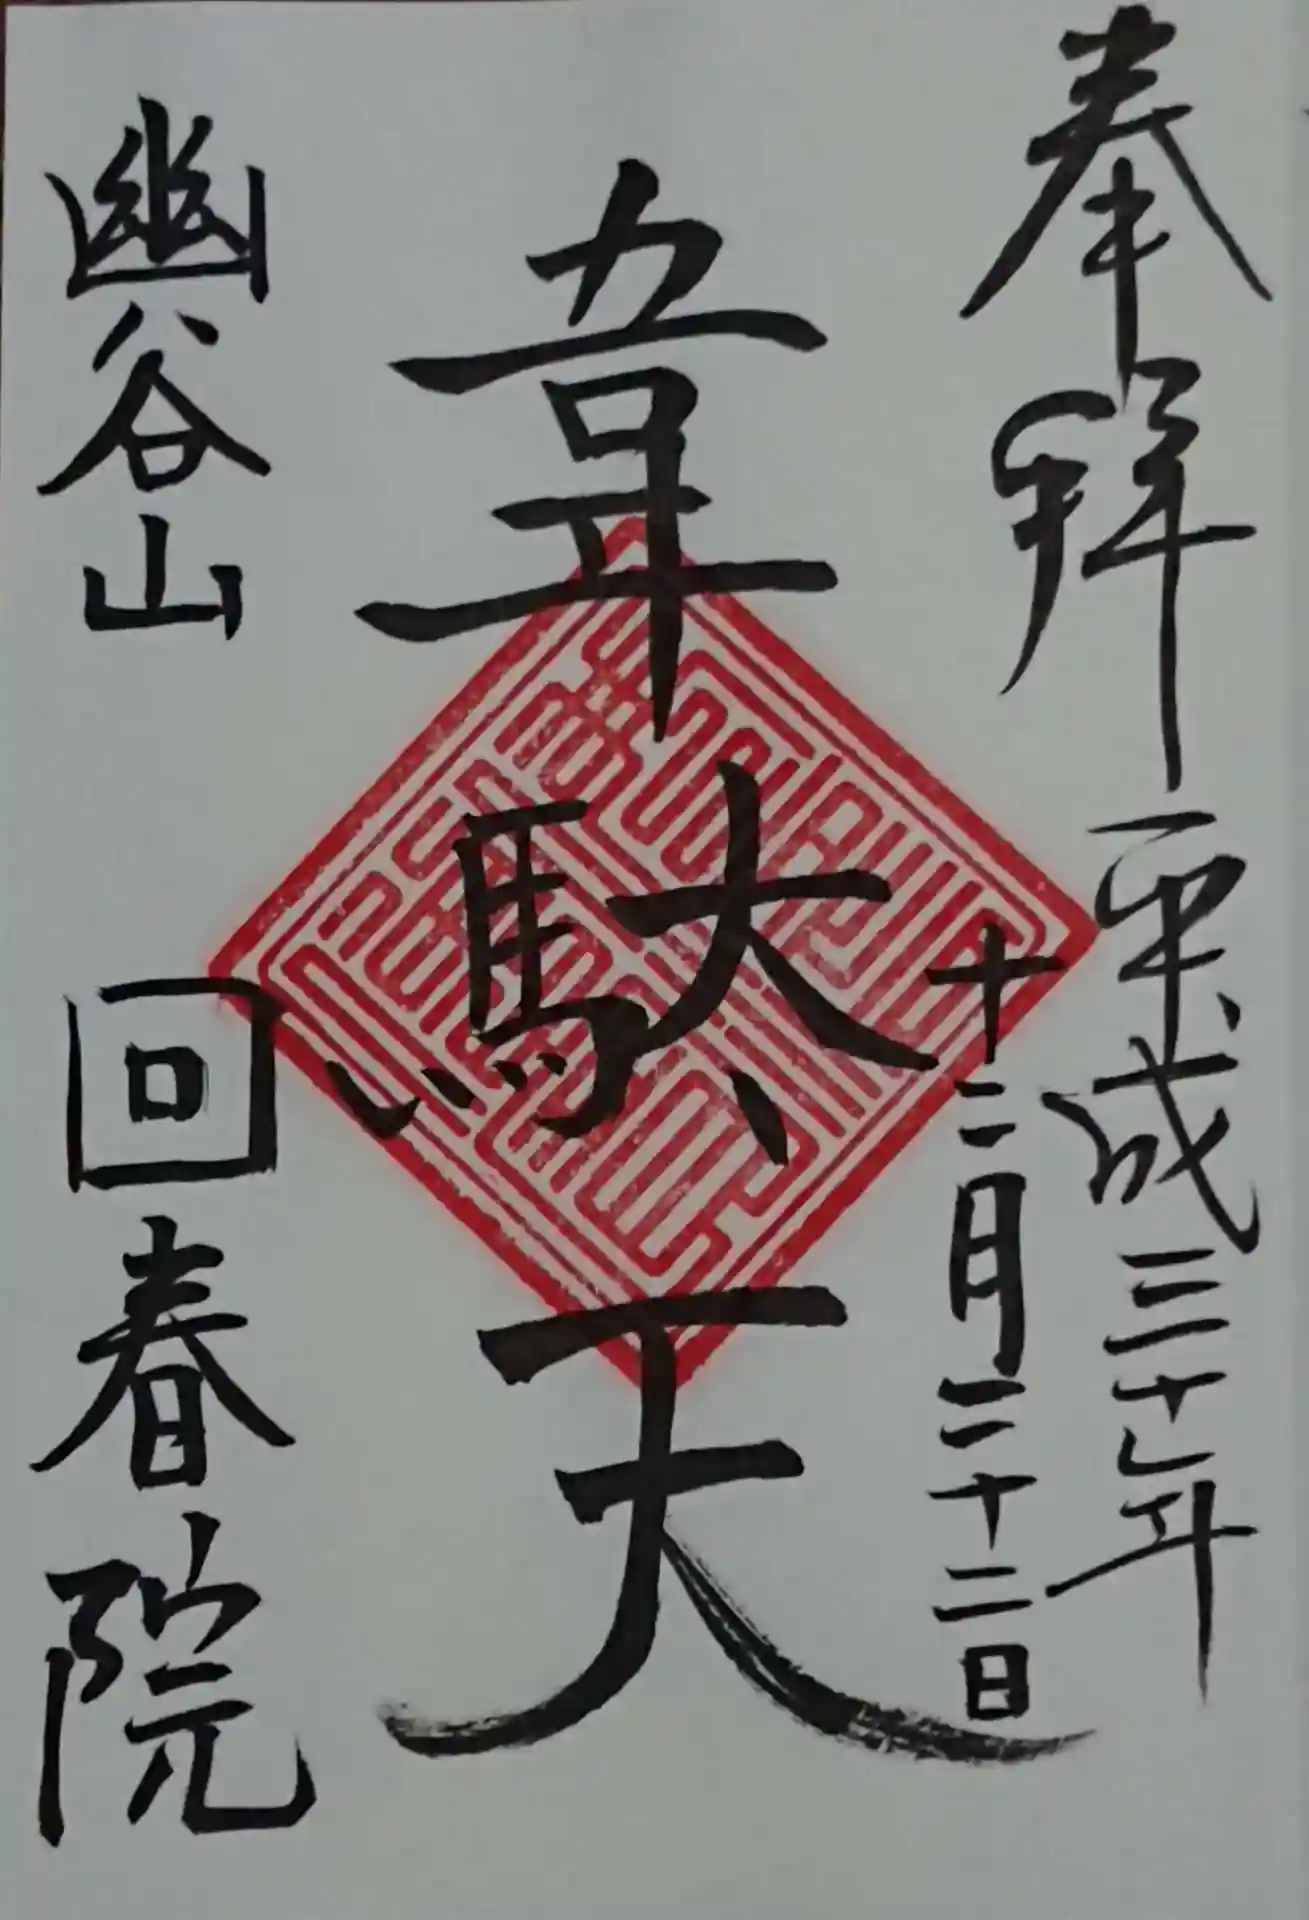 奉拜 平成三十年
十二月二十二日
韋駄天
幽谷山 回春院